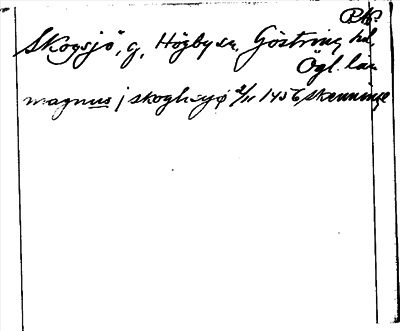 PK.
Skogsjö, g, Högby sn, Göstring hd,
Ögl. län
magnus j skoghsyø 2/11 1456 skenninge